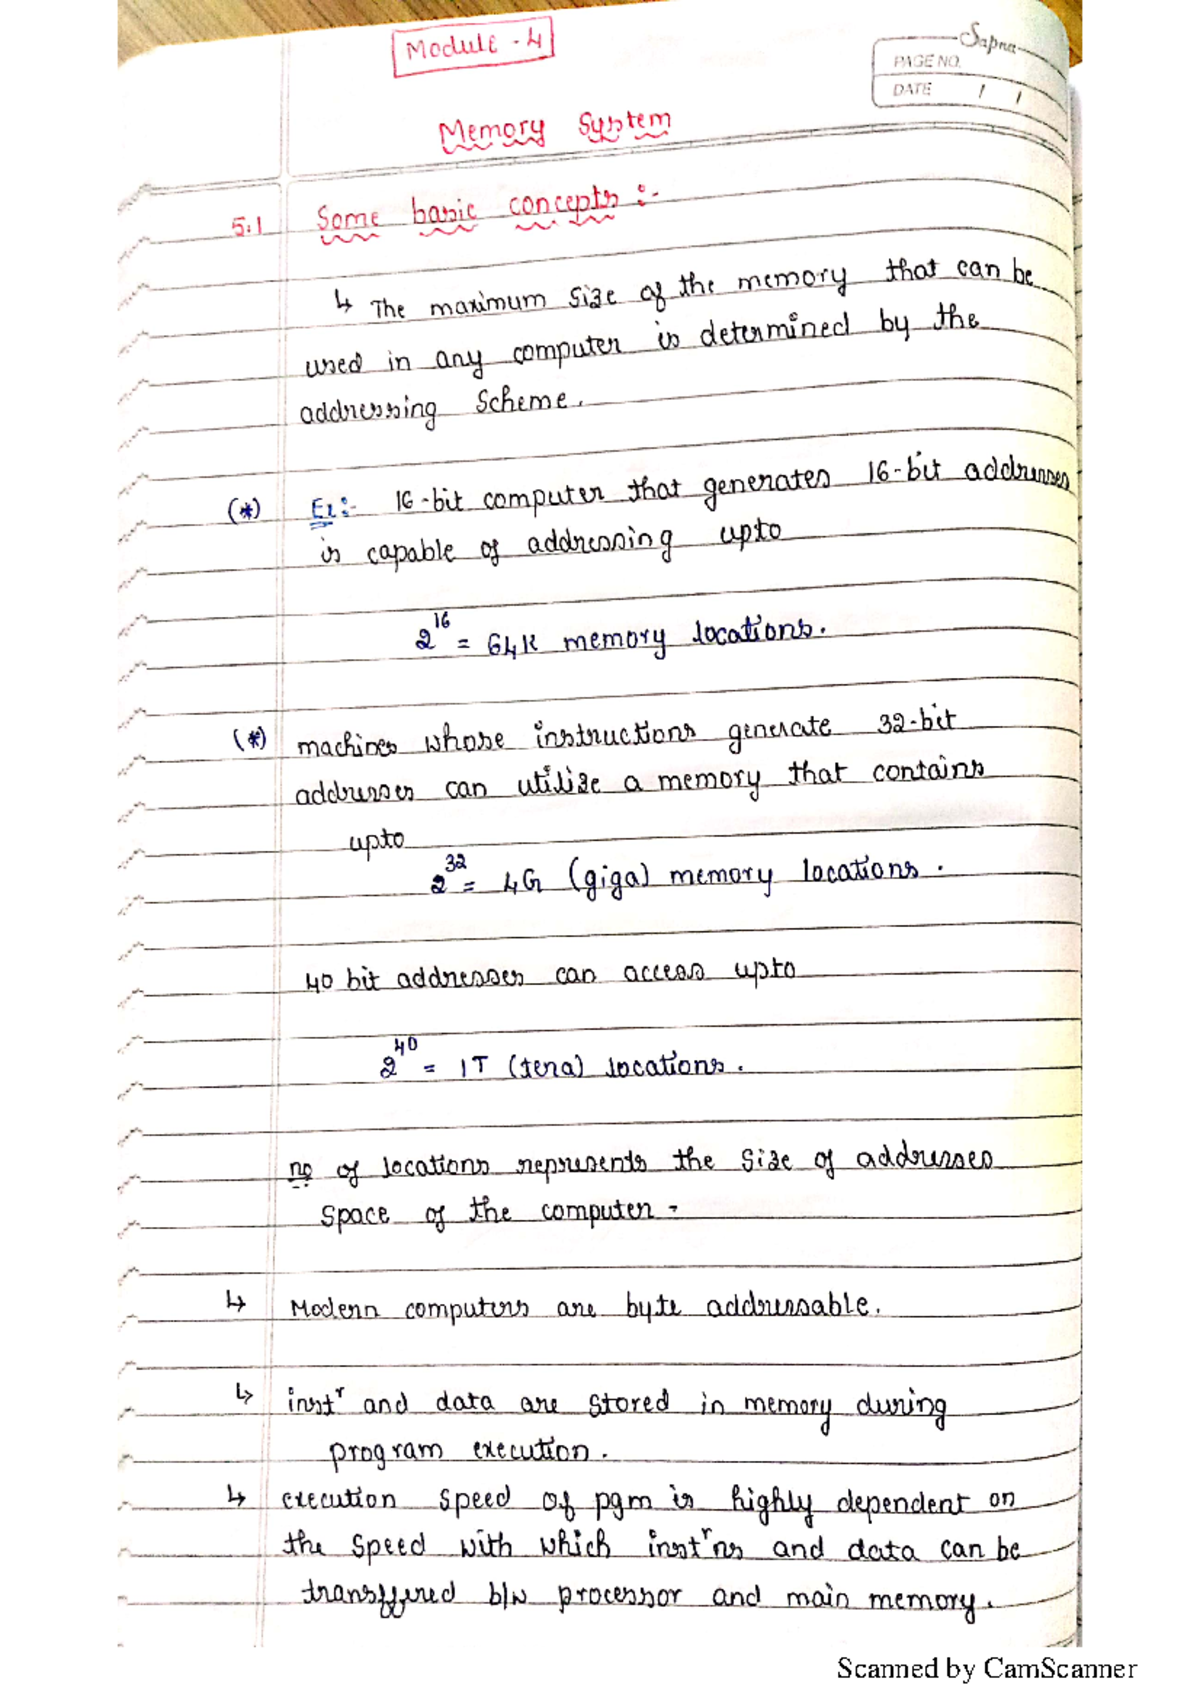 Module - 4
Sapna
PAGE NO.
DATE / /
Memory System
5.1 Some basic concepts :-
↳ The maximum size of the memory that can be
used in any computer is determined by the
addressing scheme.
(*) Ex:- 16-bit computer that generates 16-bit addresses
is capable of addressing upto
2^16 = 64K memory locations.
(*) machines whose instructions generate 32-bit
addresses can utilize a memory that contains
upto
2^32 = 4G (giga) memory locations.
40 bit addresses can access upto
2^40 = 1T (tera) locations.
no of locations represents the size of addresses
space of the computer -
↳ Modern computers are byte addressable.
↳ inst^r and data are stored in memory during
program execution.
↳ execution speed of pgm is highly dependent on
the speed with which inst^rns and data can be
transffured b/w processor and main memory.
Scanned by CamScanner